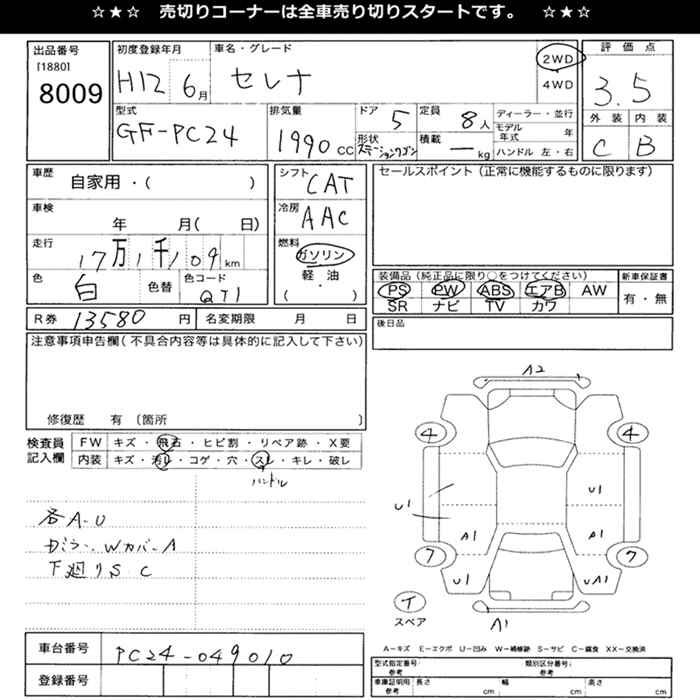 ☆★☆ 売切りコーナーは全車売り切りスタートです。 ☆★☆
出品番号
[1880]
8009
初度登録年月
H12 6月
車名・グレード
セレナ
2WD
4WD
評価点
3.5
外装 内装
C B
型式
GF-PC24
排気量
1990 CC
ドア
5
形状
ステーションワゴン
定員
8人
積載
ー kg
ディーラー・並行
モデル年式 年
ハンドル 左・右
車歴
自家用・( )
車検
年 月( 日)
走行
17万1千109 km
色
白
色替
色コード
QT1
シフト
CAT
冷房
AAC
燃料
ガソリン
軽・油
( ・ )
セールスポイント(正常に機能するものに限ります)
装備品(純正品に限り○をつけてください)
PS PW ABS エアB AW
SR ナビ TV カワ
新車保証書
有・無
後日品
R券 13580 円
名変期限 月 日
注意事項申告欄(不具合内容等は具体的に記入して下さい)
修復歴 有 〔箇所 〕
検査員記入欄
FW キズ・飛石・ヒビ割・リペア跡・X要
内装 キズ・汚れ・コゲ・穴・スレ・キレ・破レ
ハンドル
各A-U
カミラー、WカバーA
下廻りS C
A2
4 4
U1 U1
A1 A1
7 7
U1 UA1
イ
スペア
A1
A−キズ E−エクボ U−凹み W−補修跡 S−サビ C−腐食 XX−交換済
車台番号
PC24-049010
登録番号
型式指定番号 参考
類別区分番号 参考
車庫証明用 参考
長さ cm
幅 cm
高さ cm